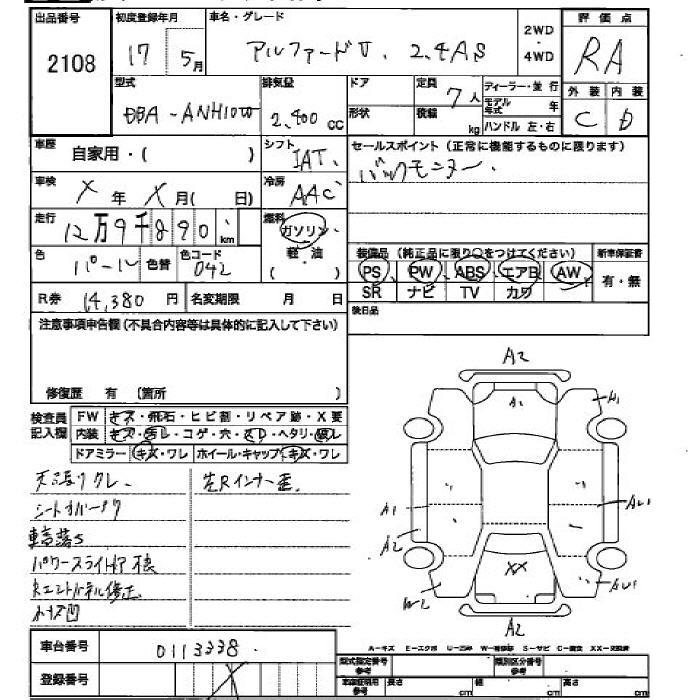 出品番号 初度登録年月 車名・グレード 2WD 評価点
2108 17 5月 アルファードV. 2.4AS ・ RA
4WD
型式 排気量 ドア 定員 7人 ディーラー・並行 外装 内装
DBA-ANH10W 2,400cc 形状 積載 kg モデル年式 年 C D
ハンドル 左・右
車歴 自家用・( ) シフト IAT. セールスポイント(正常に機能するものに限ります)
車検 X年X月( 日) 冷房 AAC バックモニター.
走行 12万9千890km 燃料 ガソリン
色 パール 色替 色コード 042 軽・油 ( ) 装備品(純正品に限り○をつけてください) 新車保証書
PS PW ABS エアB AW 有・無
R券 14,380円 名変期限 月 日 SR ナビ TV カワ
注意事項申告欄(不具合内容等は具体的に記入して下さい) 後日品
修復歴 有 〔箇所 〕
検査員記入欄 FW キズ・飛石・ヒビ割・リペア跡・X要
内装 キズ・汚レ・コゲ・穴・スレ・ヘタリ・破レ
ドアミラー キズ・ワレ ホイール・キャップ キズ・ワレ
天張クレ. 左Rインナー歪.
シートカバー
パワースライドドア
A2
A1
A1
A2
W2
XX
A2
車台番号 0113338.
登録番号
A-キズ E-エクボ U-凹み W-補修跡 S-サビ C-腐食 XX-交換済
型式指定番号 参考 類別区分番号 参考
車庫証明用 参考 長さ cm 幅 cm 高さ cm